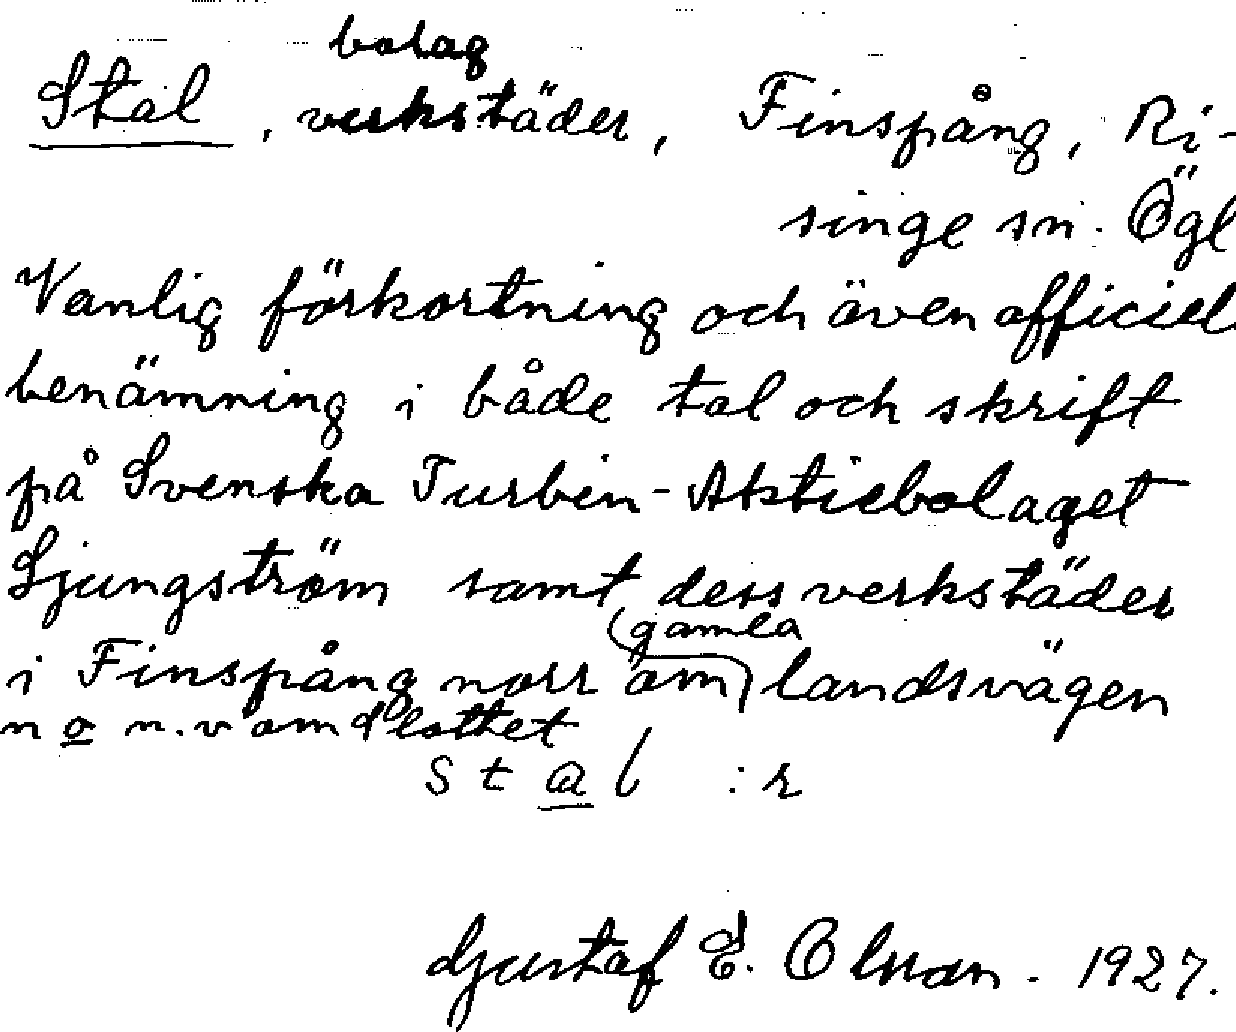 bolag
Stal, verkstäder, Finspång, Ri-
singe sn. Ögl
Vanlig förkortning och även officiel
benämning i både tal och skrift
på Svenska Turbin-Aktiebolaget
Ljungström samt dess verkstäder
(gamla
i Finspång norr om) landsvägen
n o n.v om slottet
stal :r
Gustaf E. Olsson. 1927.